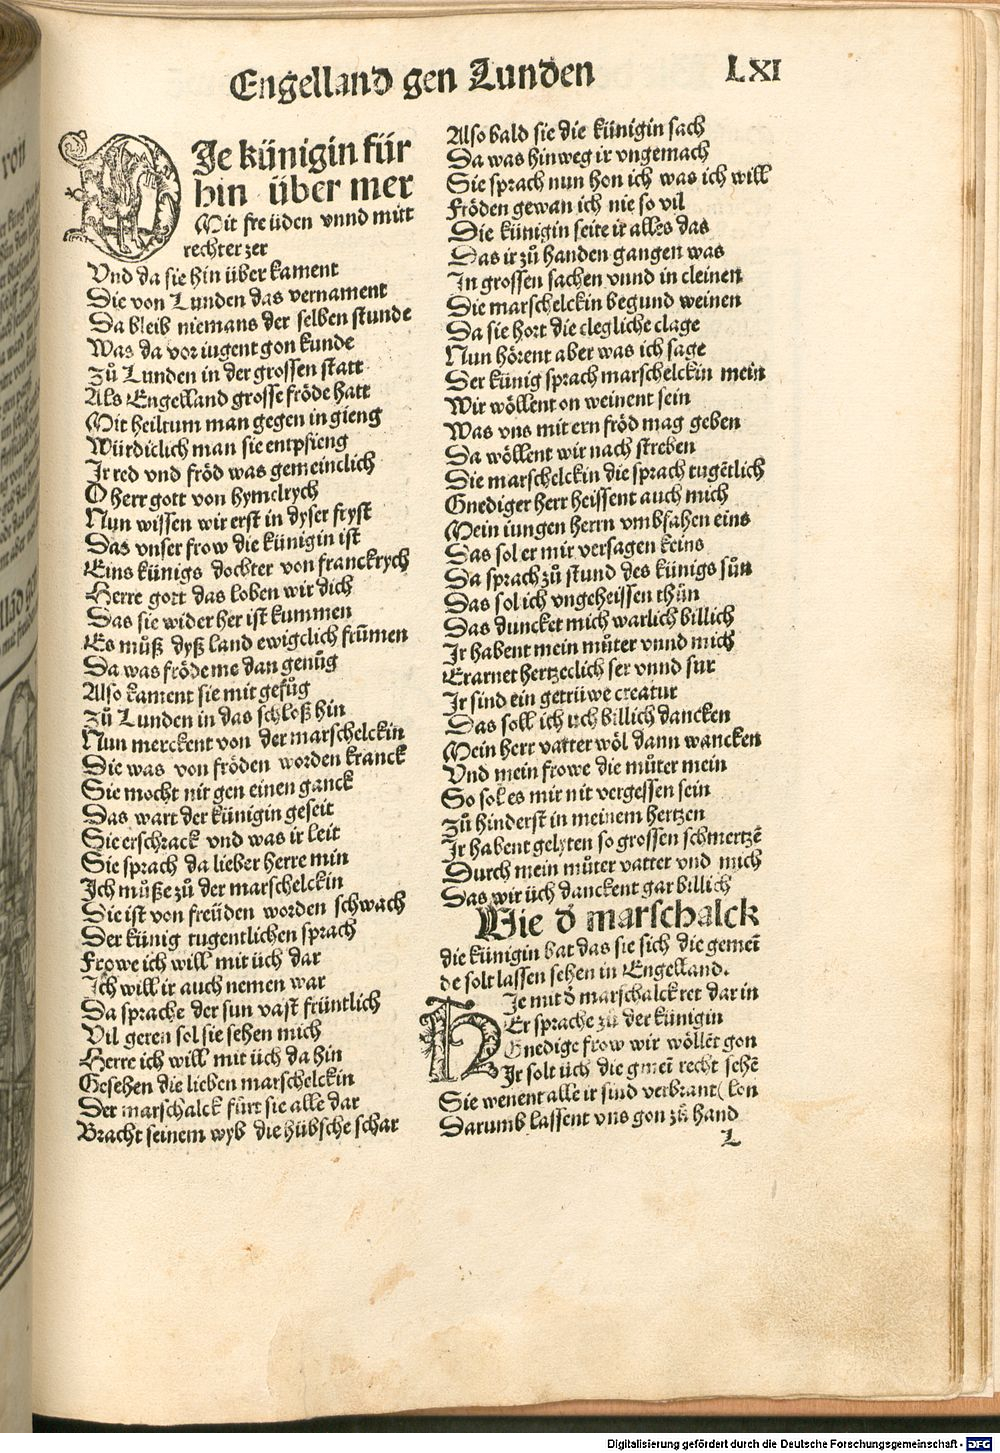 Engelland gen Lunden
LXI
DJe künigin für
hin über mer
Mit freüden vnnd mitt
rechter zer
Vnd da sie hin über kament
Die von Lunden das vernament
Da bleib niemans der selben stunde
Was da vor iugent gon kunde
Zů Lunden in der grossen statt
Als Engelland grosse fröde hatt
Mit heiltum man gegen in gieng
Würdiclich man sie entpfieng
Ir red vnd fröd was gemeinclich
O herr gott von hymelrych
Nun wissen wir erst in dyser fryst
Das vnser frow die künigin ist
Eins künigs dochter von franckrych
Herre gott das loben wir dich
Das sie wider her ist kummen
Es můß dyß land ewigclich frūmen
Da was frödeme dan genůg
Also kament sie mit gefůg
Zů Lunden in das schloß hin
Nun merckent von der marschelckin
Die was von fröden worden kranck
Sie mocht nit gen einen ganck
Das wart der künigin geseit
Sie erschrack vnd was ir leit
Sie sprach da lieber herre min
Ich můße zů der marschelckin
Sie ist von freüden worden schwach
Der künig tugentlichen sprach
Frowe ich will mit üch dar
Ich will ir auch nemen war
Da sprache der sun vast früntlich
Vil geren sol sie sehen mich
Herre ich will mit üch da hin
Gesehen die lieben marschelckin
Der marschalck fürt sie alle dar
Bracht seinem wyb die hübsche schar
Also bald sie die künigin sach
Da was hinweg ir vngemach
Sie sprach nun hon ich was ich will
Fröden gewan ich nie so vil
Die künigin seite ir alles das
Das ir zů handen gangen was
In grossen sachen vnnd in cleinen
Die marschelckin begund weinen
Da sie hort die clegliche clage
Nun hörent aber was ich sage
Der künig sprach marschelckin mein
Wir wöllent on weinent sein
Was vns mit ern fröd mag geben
Da wöllent wir nach streben
Die marschelckin die sprach tugētlich
Gnediger herr heissent auch mich
Mein iungen herrn vmbfahen eins
Das sol er mir versagen keins
Da sprach zů stund des künigs sůn
Das sol ich vngeheissen thůn
Das duncket mich warlich billich
Ir habent mein můter vnnd mich
Erarnet hertzeclich ser vnnd sur
Ir sind ein getrüwe creatur
Das soll ich üch billich dancken
Mein herr vatter wöl dann wancken
Vnd mein frowe die můter mein
So sol es mir nit vergessen sein
Zů hinderst in meinem hertzen
Ir habent gelyten so grossen schmertzē
Durch mein můter vatter vnd mich
Das wir üch danckent gar billich
Wie d̄ marschalck
die künigin bat das sie sich die gemeī
de solt lassen sehen in Engelland.
HJe mit d̄ marschalck ret dar in
Er sprache zů der künigin
Gnedige frow wir wöllēt gon
Ir solt üch die gmeī recht sehē
Sie wenent alle ir sind verbrant ( lon
Darumb lassent vns gon zů hand
L
Digitalisierung gefördert durch die Deutsche Forschungsgemeinschaft - DFG